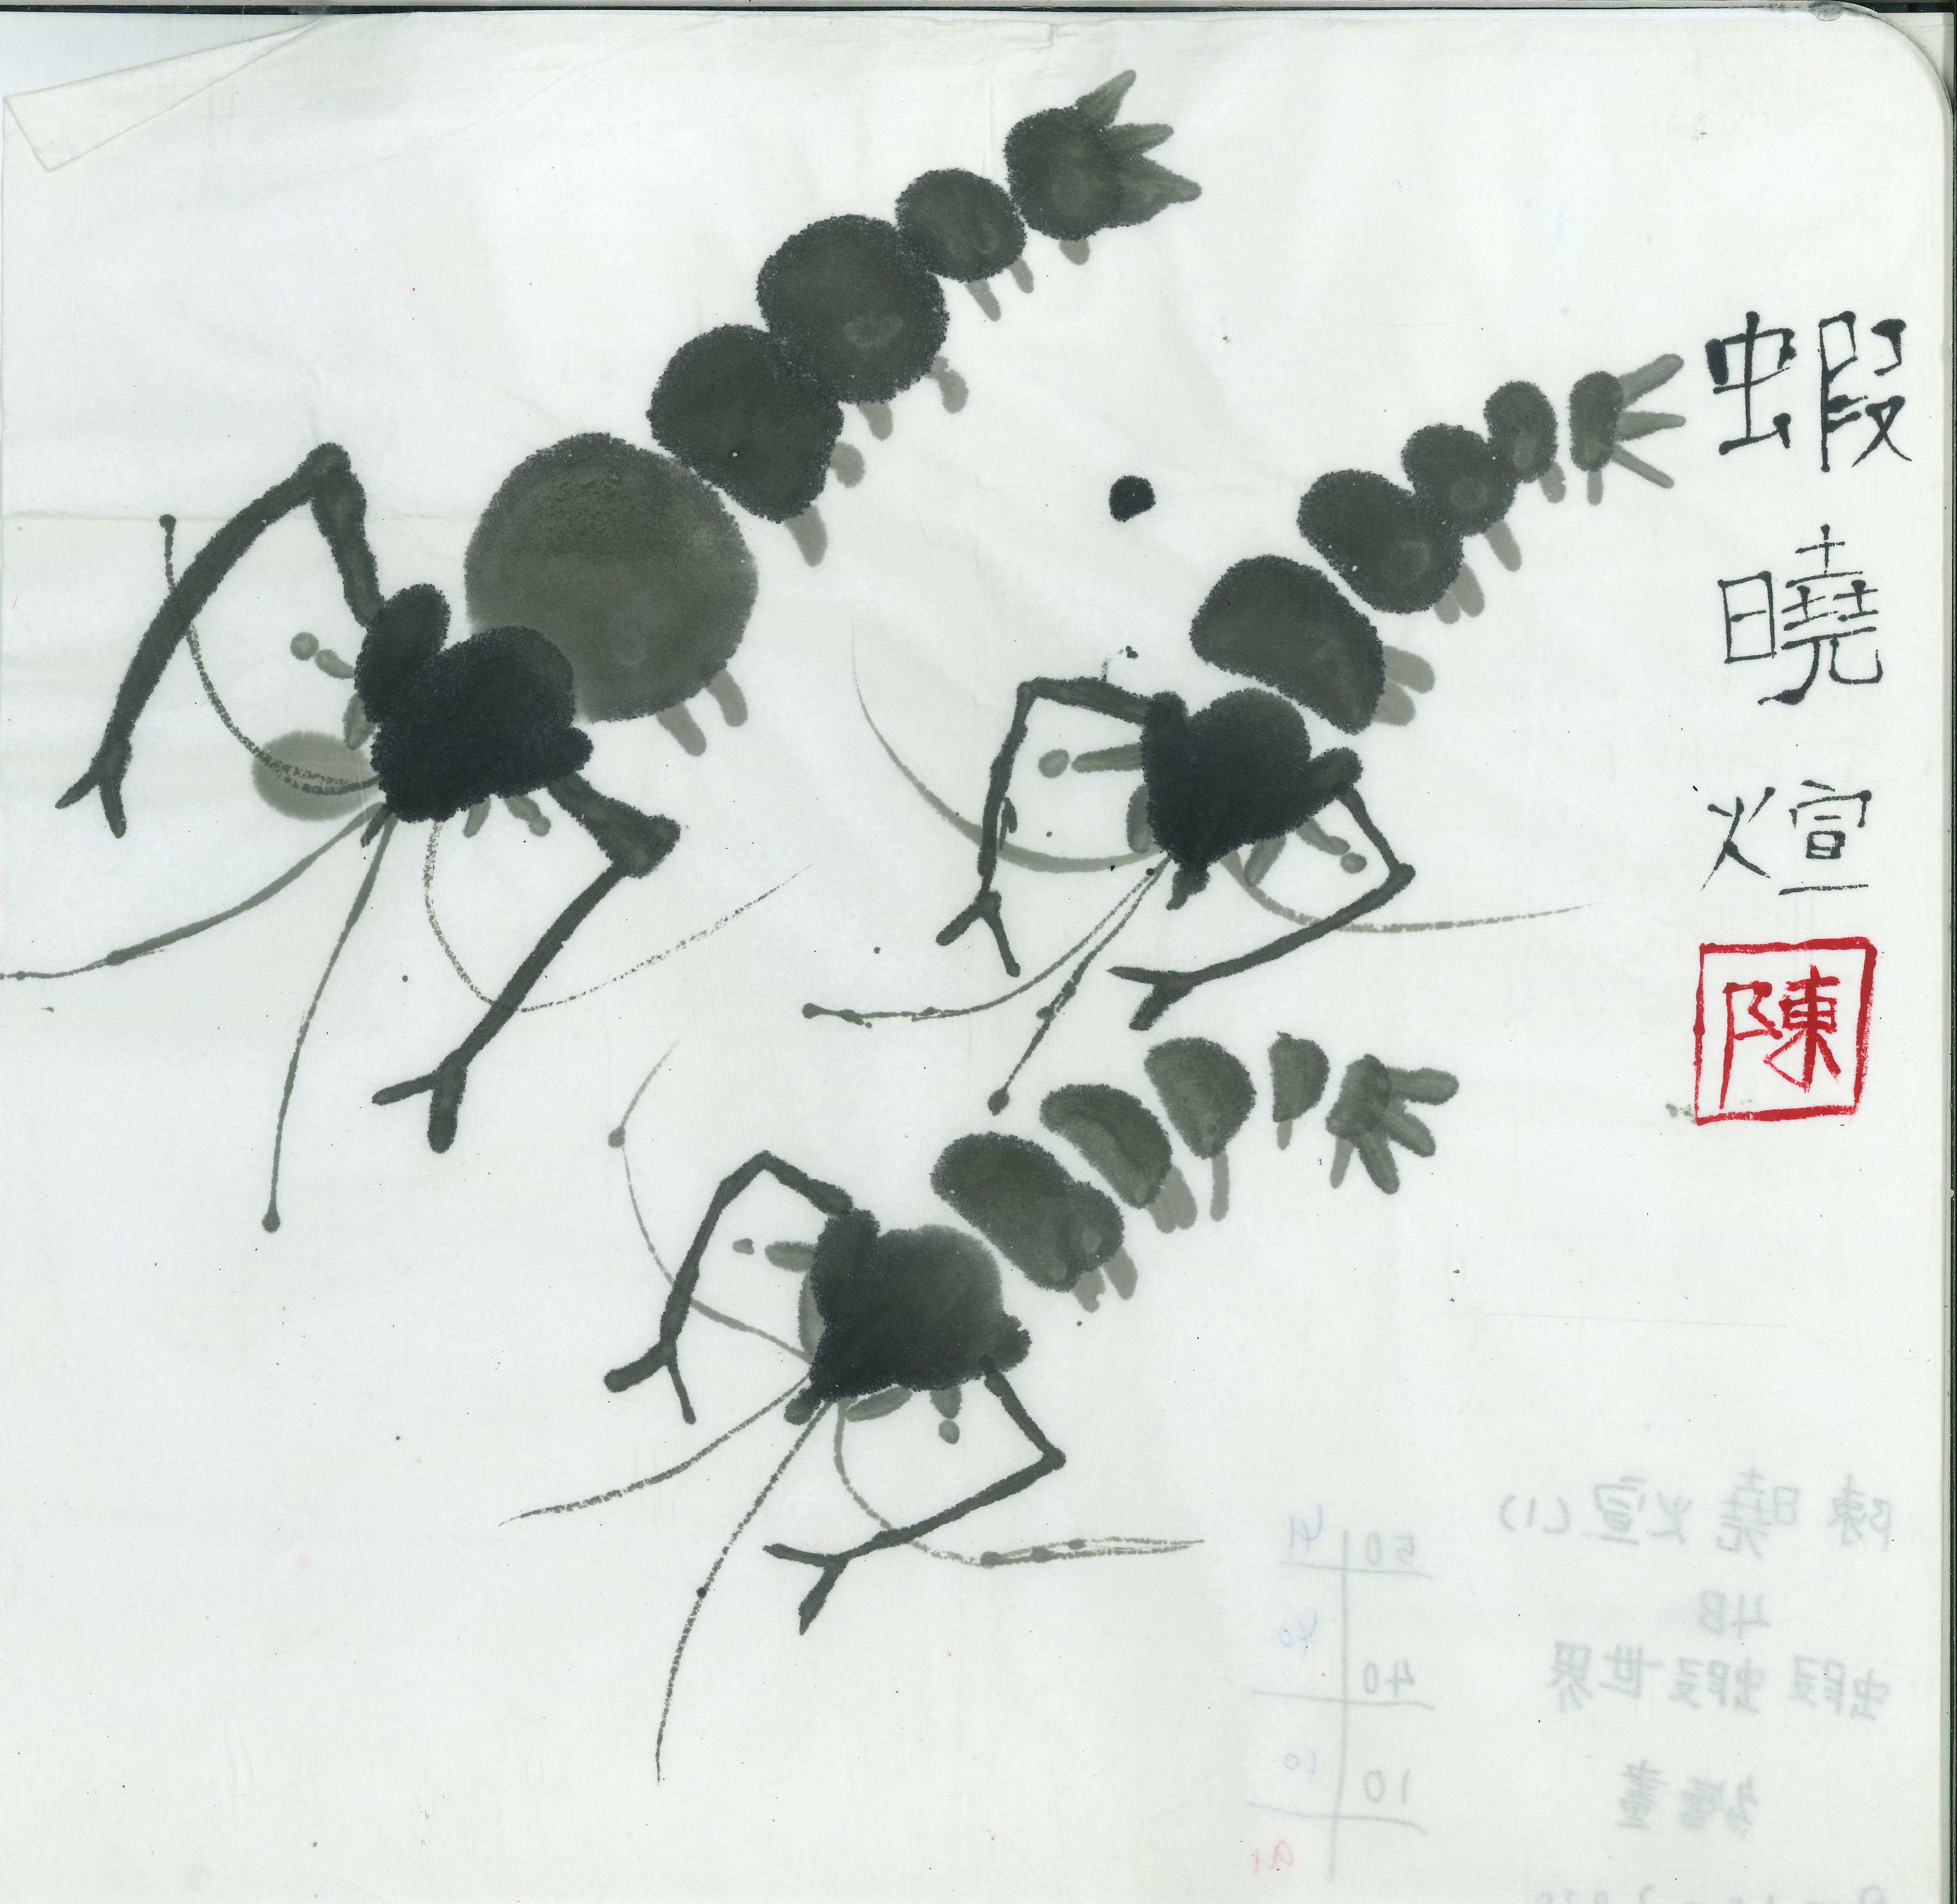 蝦曉煊
陳
陳曉煊(1)
4B
蝦蝦世界
50 41
40 40
10 10
91